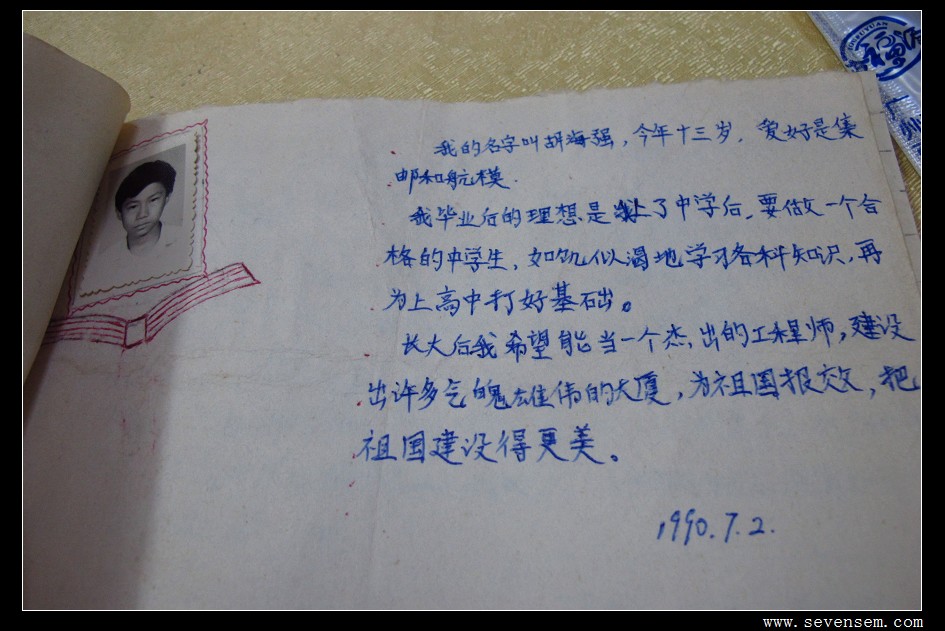 我的名字叫胡海强，今年十三岁，爱好是集
邮和航模．
我毕业后的理想是上了中学后，要做一个合
格的中学生，如饥似渴地学习各科知识，再
为上高中打好基础。
长大后我希望能当一个杰出的工程师，建设
出许多气魄雄伟的大厦，为祖国报效，把
祖国建设得更美。
1990.7.2.
www.sevensem.com